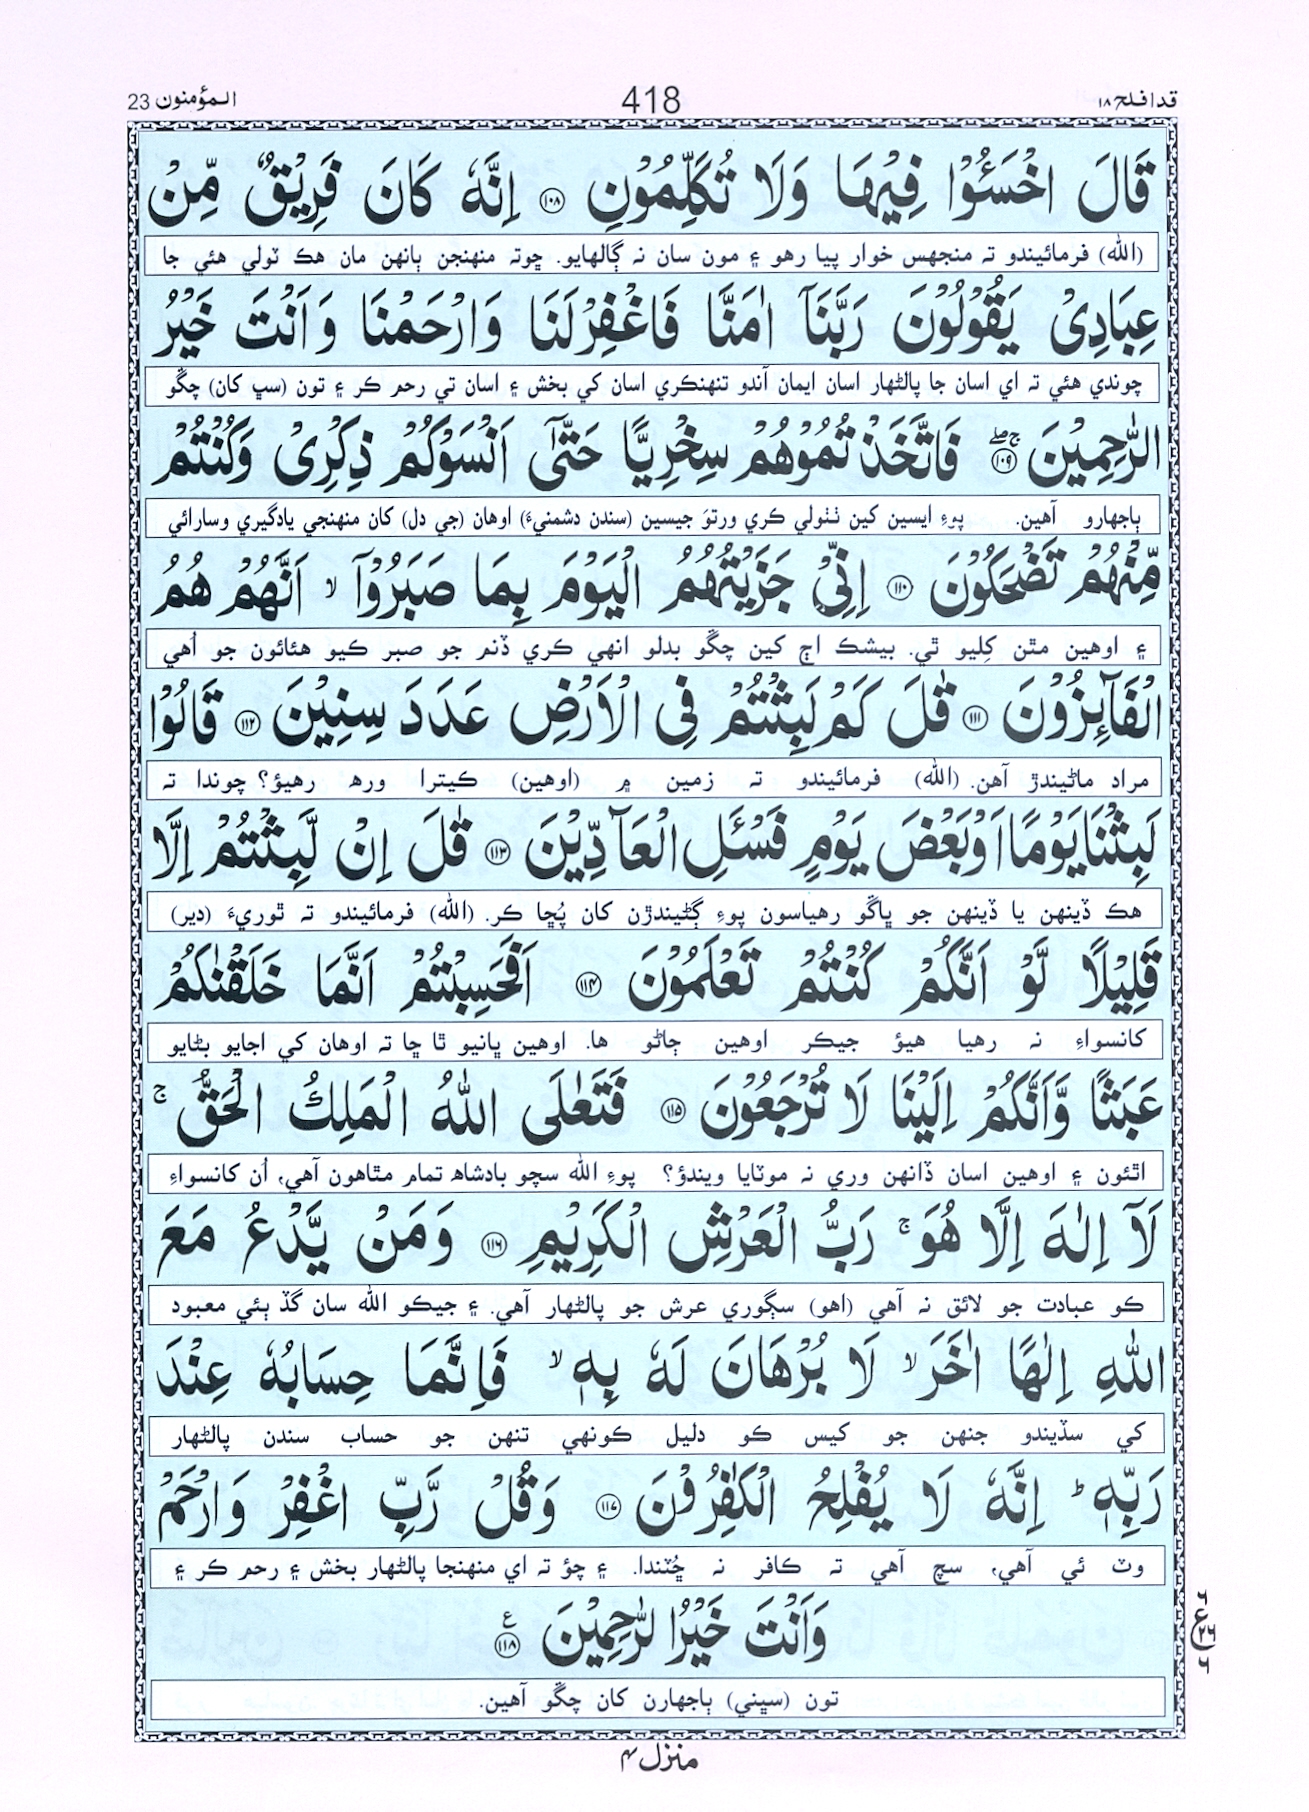 قد افلح ١٨
418
المؤمنون 23
قَالَ اخْسَـُٔوْا فِيْهَا وَلَا تُكَلِّمُوْنِ ۝١٠٨ اِنَّهٗ كَانَ فَرِيْقٌ مِّنْ
(الله) فرمائيندو تہ منجهس خوار پيا رهو ۽ مون سان نہ ڳالهايو. ڇوتہ منهنجن ٻانهن مان هڪ ٽولي هئي جا
عِبَادِىْ يَقُوْلُوْنَ رَبَّنَآ اٰمَنَّا فَاغْفِرْ لَنَا وَارْحَمْنَا وَاَنْتَ خَيْرُ
چوندي هئي تہ اي اسان جا پالڻهار اسان ايمان آندو تنهنڪري اسان کي بخش ۽ اسان تي رحم ڪر ۽ تون (سڀ کان) چڱو
الرّٰحِمِيْنَ ۝١٠٩ فَاتَّخَذْتُمُوْهُمْ سِخْرِيًّا حَتّٰٓى اَنْسَوْكُمْ ذِكْرِىْ وَكُنْتُمْ
ٻاجهارو آهين. پوءِ ايسين کين ٺٺولي ڪري ورتوَ جيسين (سندن دشمنيءَ) اوهان (جي دل) کان منهنجي يادگيري وسارائي
مِّنْهُمْ تَضْحَكُوْنَ ۝١١٠ اِنِّىْ جَزَيْتُهُمُ الْيَوْمَ بِمَا صَبَرُوْٓا ۙ اَنَّهُمْ هُمُ
۽ اوهين مٿن کِليو ٿي. بيشڪ اڄ کين چڱو بدلو انهي ڪري ڏنم جو صبر ڪيو هئائون جو اُهي
الْفَآئِزُوْنَ ۝١١١ قٰلَ كَمْ لَبِثْتُمْ فِى الْاَرْضِ عَدَدَ سِنِيْنَ ۝١١٢ قَالُوْا
مراد ماڻيندڙ آهن. (الله) فرمائيندو تہ زمين ۾ (اوهين) ڪيترا ورھ رهيؤ؟ چوندا تہ
لَبِثْنَا يَوْمًا اَوْ بَعْضَ يَوْمٍ فَسْـَٔلِ الْعَآدِّيْنَ ۝١١٣ قٰلَ اِنْ لَّبِثْتُمْ اِلَّا
هڪ ڏينهن يا ڏينهن جو ڀاڱو رهياسون پوءِ ڳڻيندڙن کان پُڇا ڪر. (الله) فرمائيندو تہ ٿوريءَ (دير)
قَلِيْلًا لَّوْ اَنَّكُمْ كُنْتُمْ تَعْلَمُوْنَ ۝١١٤ اَفَحَسِبْتُمْ اَنَّمَا خَلَقْنٰكُمْ
کانسواءِ نہ رهيا هيؤ جيڪر اوهين ڄاڻو ها. اوهين ڀانيو ٿا ڇا تہ اوهان کي اجايو بڻايو
عَبَثًا وَّاَنَّكُمْ اِلَيْنَا لَا تُرْجَعُوْنَ ۝١١٥ فَتَعٰلَى اللّٰهُ الْمَلِكُ الْحَقُّ ۚ
اٿئون ۽ اوهين اسان ڏانهن وري نہ موٽايا ويندؤ؟ پوءِ الله سچو بادشاھ تمام مٿاهون آهي، اُن کانسواءِ
لَآ اِلٰهَ اِلَّا هُوَ ۚ رَبُّ الْعَرْشِ الْكَرِيْمِ ۝١١٦ وَمَنْ يَّدْعُ مَعَ
ڪو عبادت جو لائق نہ آهي (اهو) سڳوري عرش جو پالڻهار آهي. ۽ جيڪو الله سان گڏ ٻئي معبود
اللّٰهِ اِلٰهًا اٰخَرَ ۙ لَا بُرْهَانَ لَهٗ بِهٖ ۙ فَاِنَّمَا حِسَابُهٗ عِنْدَ
کي سڏيندو جنهن جو کيس ڪو دليل ڪونهي تنهن جو حساب سندن پالڻهار
رَبِّهٖ ؕ اِنَّهٗ لَا يُفْلِحُ الْكٰفِرُوْنَ ۝١١٧ وَقُلْ رَّبِّ اغْفِرْ وَارْحَمْ
وٽ ئي آهي، سچ آهي تہ ڪافر نہ ڇُٽندا. ۽ چؤ تہ اي منهنجا پالڻهار بخش ۽ رحم ڪر ۽
وَاَنْتَ خَيْرُ الرّٰحِمِيْنَ ۝١١٨ ع
تون (سڀني) ٻاجهارن کان چڱو آهين.
منزل ٤